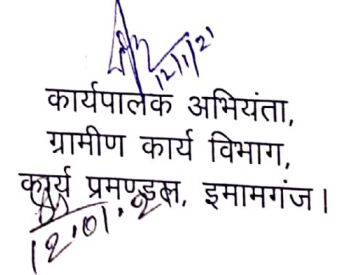 12/1/21
कार्यपालक अभियंता,
ग्रामीण कार्य विभाग,
कार्य प्रमण्डल, इमामगंज।
12.01.2021